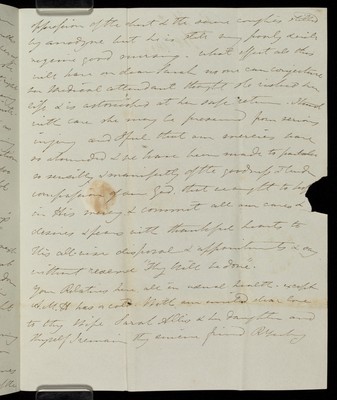 oppression of the chest & the severe cough is stilled
by anodyne but he is still very poorly & with
good nursing. What effect all this
will have on dear Sarah no one can conjecture
her Medical attendant thought she risked her
life & is astonished at her safe return.
with care she may be preserved from serious
injury and Oh that our mercies have
so abounded & we have been made to partake
so sensibly & manifestly of the goodness & tender
compassion of our God that we ought to hope
in His mercy & commit all our cares &
desires & fears with thankful hearts to
His all wise disposal & appointments & say
without reserve Thy Will be done.
Your Relatives here all in usual health except
has a cold. With our united dear love
to thy Wife Sarah & her daughter and
thyself I remain thy sincere friend